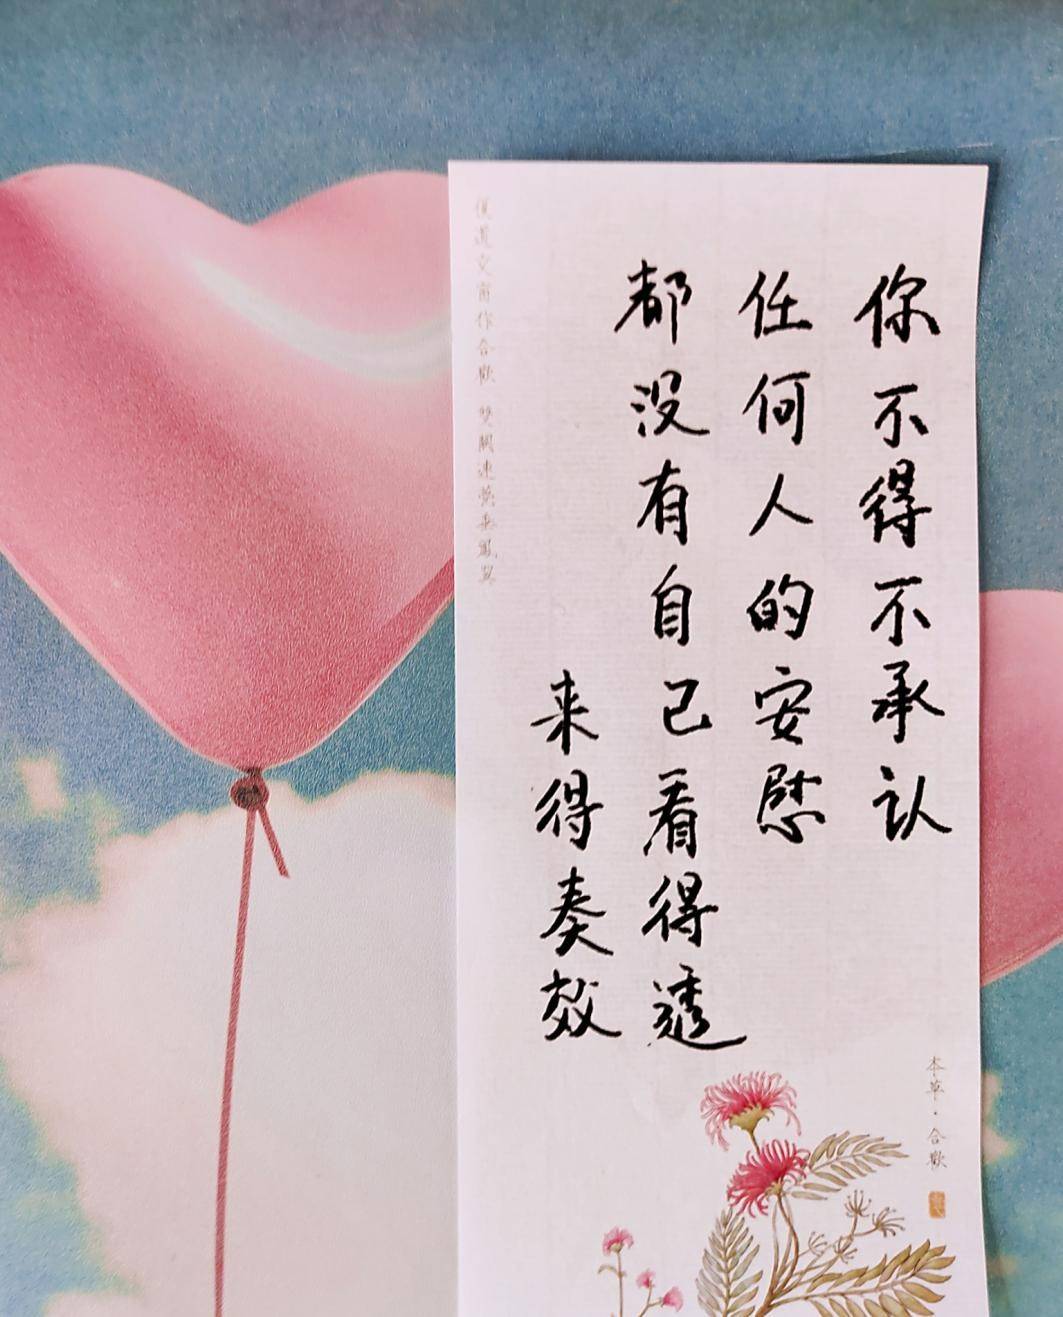 你不得不承认
任何人的安慰
都没有自己看得透
来得奏效
作合歡
本草·合歡